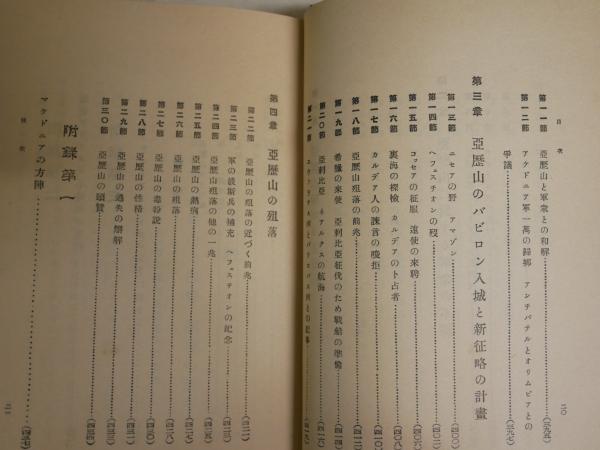 目次
第一一節 亞歷山と軍衆との和解 (三九五)
第一二節 マケドニア軍一萬の歸郷 アンチパテルとオリムピアとの
爭議 (三九七)
第三章 亞歷山のバビロン入城と新征略の計畫
第一三節 ニセアの野 アマゾン (四〇〇)
第一四節 ヘフェスチオンの歿
第一五節 コッセアの征服 遠使の來聘
第一六節 裏海の探檢 カルデアの卜占者 (四〇八)
第一七節 カルデア人の諫言の峻拒
第一八節 亞歷山殂落の前兆
第一九節 希臘の來使 亞剌比亞征伐のため戰船の準備 (四一四)
第二〇節 亞剌比亞 ネアルクスの航海 (四一六)
第二一節
二〇
第四章 亞歷山の殂落
第二二節 亞歷山の殂落の近づく前兆
第二三節 軍の波斯兵の補充 ヘフェスチオンの紀念 (四二三)
第二四節 亞歷山殂落の他の一兆 (四二五)
第二五節 亞歷山の熱病
第二六節 亞歷山の殂落 (四二八)
第二七節 亞歷山の毒殺說 (四三〇)
第二八節 亞歷山の性格
第二九節 亞歷山の過失の辯解
第三〇節 亞歷山の頌贊 (四三四)
附錄第一
マケドニアの方陣 (四三七)
目次
二一